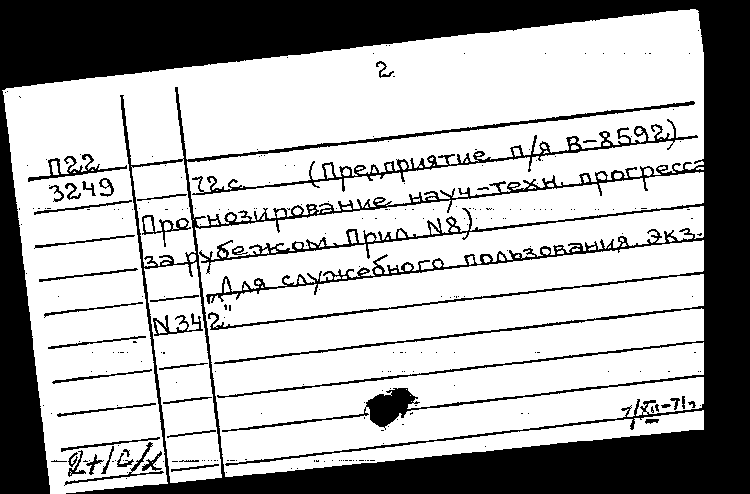 2
П22
3249
72 с. (Предприятие п/я В-8592)
Прогнозирование науч.-техн. прогресса
за рубежом. Прил. N8).
„Для служебного пользования. Экз.
N342"
7/XII-71г.
2+1с/х